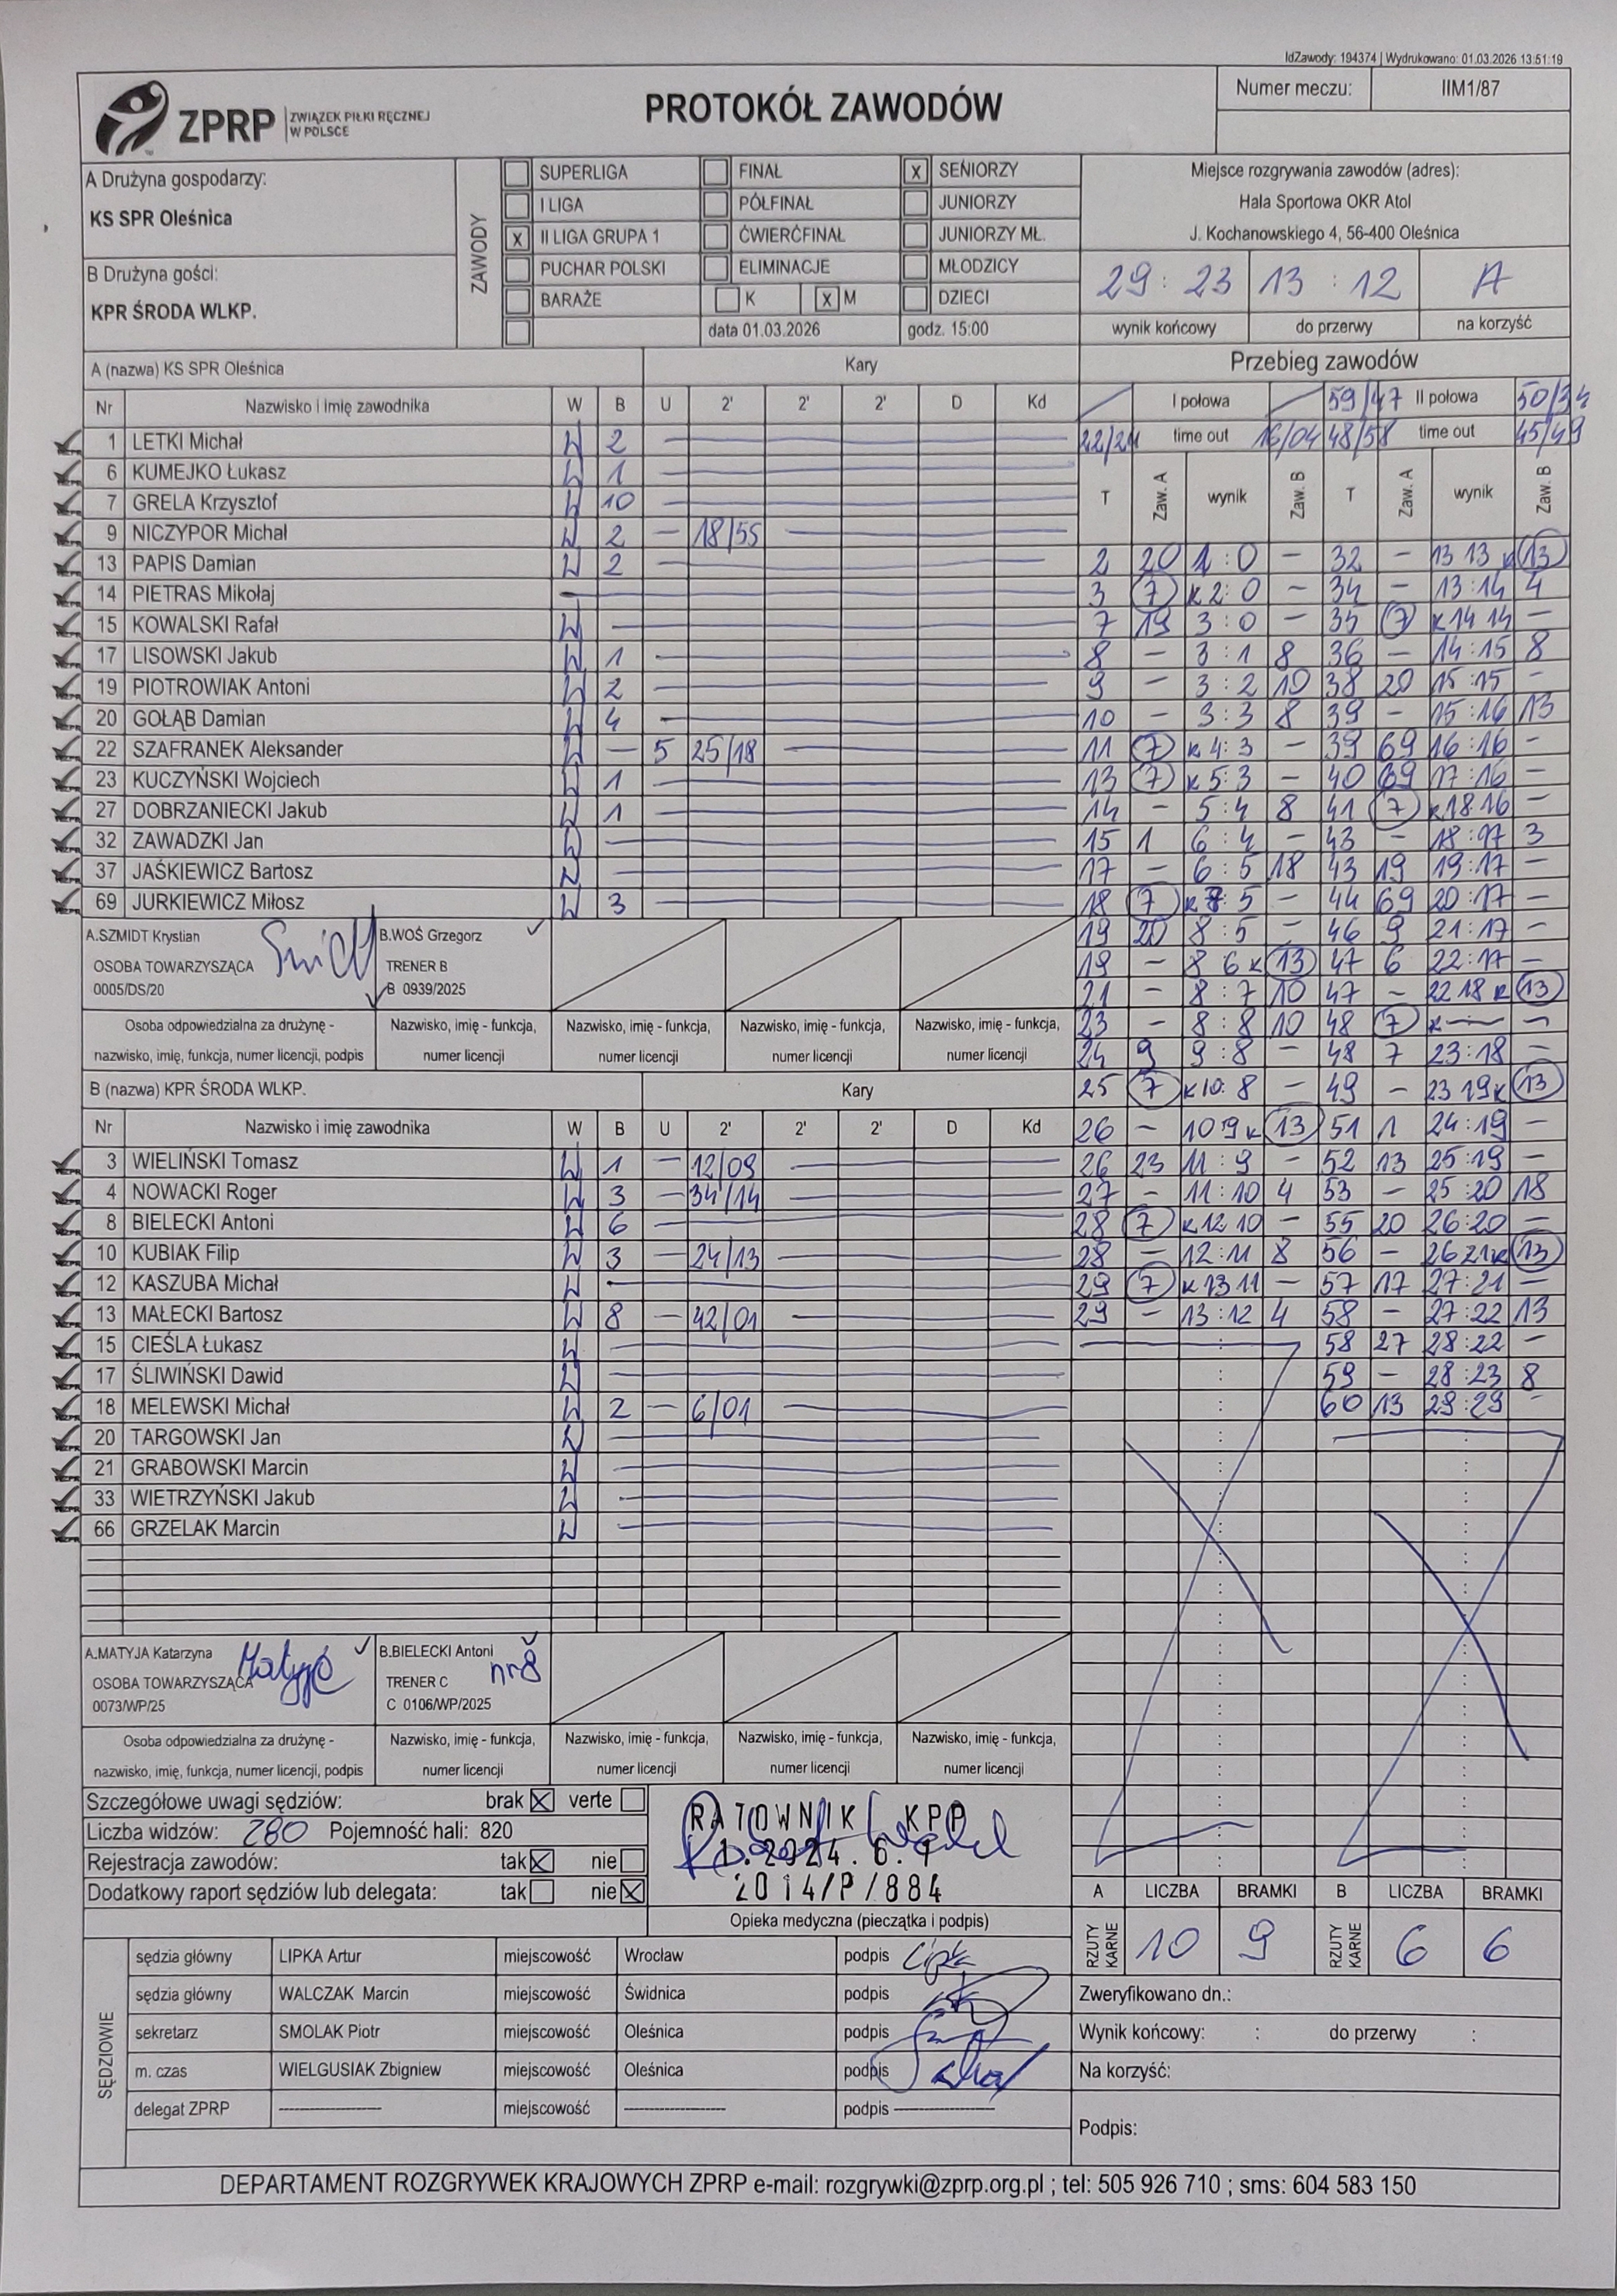 IdZawody: 194374 | Wydrukowano: 01.03.2026 13:51:19
ZPRP ZWIĄZEK PIŁKI RĘCZNEJ W POLSCE
PROTOKÓŁ ZAWODÓW
Numer meczu: IIM1/87
A Drużyna gospodarzy:
KS SPR Oleśnica
B Drużyna gości:
KPR ŚRODA WLKP.
ZAWODY
SUPERLIGA FINAŁ x SENIORZY
I LIGA PÓŁFINAŁ JUNIORZY
x II LIGA GRUPA 1 ĆWIERĆFINAŁ JUNIORZY MŁ.
PUCHAR POLSKI ELIMINACJE MŁODZICY
BARAŻE K x M DZIECI
data 01.03.2026 godz. 15:00
Miejsce rozgrywania zawodów (adres):
Hala Sportowa OKR Atol
J. Kochanowskiego 4, 56-400 Oleśnica
29 : 23 13 : 12 A
wynik końcowy do przerwy na korzyść
A (nazwa) KS SPR Oleśnica Kary
Nr Nazwisko i imię zawodnika W B U 2' 2' 2' D Kd
1 LETKI Michał W 2
6 KUMEJKO Łukasz W 1
7 GRELA Krzysztof W 10
9 NICZYPOR Michał W 2 — 18/55
13 PAPIS Damian W 2
14 PIETRAS Mikołaj
15 KOWALSKI Rafał W
17 LISOWSKI Jakub W 1
19 PIOTROWIAK Antoni W 2
20 GOŁĄB Damian W 4
22 SZAFRANEK Aleksander W — 5 25/18
23 KUCZYŃSKI Wojciech W 1
27 DOBRZANIECKI Jakub W 1
32 ZAWADZKI Jan W
37 JAŚKIEWICZ Bartosz W
69 JURKIEWICZ Miłosz W 3
A.SZMIDT Krystian
OSOBA TOWARZYSZĄCA
0005/DS/20
B.WOŚ Grzegorz
TRENER B
B 0939/2025
Osoba odpowiedzialna za drużynę - nazwisko, imię, funkcja, numer licencji, podpis
Nazwisko, imię - funkcja, numer licencji
Nazwisko, imię - funkcja, numer licencji
Nazwisko, imię - funkcja, numer licencji
Nazwisko, imię - funkcja, numer licencji
B (nazwa) KPR ŚRODA WLKP. Kary
Nr Nazwisko i imię zawodnika W B U 2' 2' 2' D Kd
3 WIELIŃSKI Tomasz W 1 — 12/09
4 NOWACKI Roger W 3 — 34/14
8 BIELECKI Antoni W 6
10 KUBIAK Filip W 3 — 24/13
12 KASZUBA Michał W
13 MAŁECKI Bartosz W 8 — 42/01
15 CIEŚLA Łukasz W
17 ŚLIWIŃSKI Dawid W
18 MELEWSKI Michał W 2 — 6/01
20 TARGOWSKI Jan W
21 GRABOWSKI Marcin W
33 WIETRZYŃSKI Jakub W
66 GRZELAK Marcin W
A.MATYJA Katarzyna
OSOBA TOWARZYSZĄCA
0073/WP/25
Matyja
B.BIELECKI Antoni
nr8
TRENER C
C 0106/WP/2025
Osoba odpowiedzialna za drużynę - nazwisko, imię, funkcja, numer licencji, podpis
Nazwisko, imię - funkcja, numer licencji
Nazwisko, imię - funkcja, numer licencji
Nazwisko, imię - funkcja, numer licencji
Nazwisko, imię - funkcja, numer licencji
Przebieg zawodów
I połowa 59/47 II połowa 50/34
22/21 time out 16/04 48/58 time out 45/49
T Zaw. A wynik Zaw. B T Zaw. A wynik Zaw. B
2 20 1:0 — 32 — 13 13 k 13
3 7 k 2:0 — 34 — 13:14 4
7 19 3:0 — 35 7 k 14 14 —
8 — 3:1 8 36 — 14:15 8
9 — 3:2 10 38 20 15:15 —
10 — 3:3 8 39 — 15:16 13
11 7 k 4:3 — 39 69 16:16 —
13 7 k 5:3 — 40 69 17:16 —
14 — 5:4 8 41 7 k 18 16 —
15 1 6:4 — 43 — 18:17 3
17 — 6:5 18 43 19 19:17 —
18 7 k 7 5 — 44 69 20:17 —
19 20 8:5 — 46 9 21:17 —
19 — 8 6 k 13 47 6 22:17 —
21 — 8:7 10 47 — 22 18 k 13
23 — 8:8 10 48 7 k — —
24 9 9:8 — 48 7 23:18 —
25 7 k 10:8 — 49 — 23 19 k 13
26 — 10 9 k 13 51 1 24:19 —
26 23 11:9 — 52 13 25:19 —
27 — 11:10 4 53 — 25:20 18
28 7 k 12 10 — 55 20 26:20 —
28 — 12:11 8 56 — 26 21 k 13
29 7 k 13 11 — 57 17 27:21 —
29 — 13:12 4 58 — 27:22 13
58 27 28:22 —
59 — 28:23 8
60 13 29:23 —
Szczegółowe uwagi sędziów: brak x verte
Liczba widzów: 280 Pojemność hali: 820
Rejestracja zawodów: tak x nie
Dodatkowy raport sędziów lub delegata: tak nie x
RATOWNIK KPP
2014/P/884
Opieka medyczna (pieczątka i podpis)
A LICZBA BRAMKI B LICZBA BRAMKI
RZUTY KARNE 10 9 RZUTY KARNE 6 6
SĘDZIOWIE
sędzia główny LIPKA Artur miejscowość Wrocław podpis Lipka
sędzia główny WALCZAK Marcin miejscowość Świdnica podpis
sekretarz SMOLAK Piotr miejscowość Oleśnica podpis
m. czas WIELGUSIAK Zbigniew miejscowość Oleśnica podpis
delegat ZPRP ---------- miejscowość ---------- podpis ----------
Zweryfikowano dn.:
Wynik końcowy: : do przerwy :
Na korzyść:
Podpis:
DEPARTAMENT ROZGRYWEK KRAJOWYCH ZPRP e-mail: rozgrywki@zprp.org.pl ; tel: 505 926 710 ; sms: 604 583 150